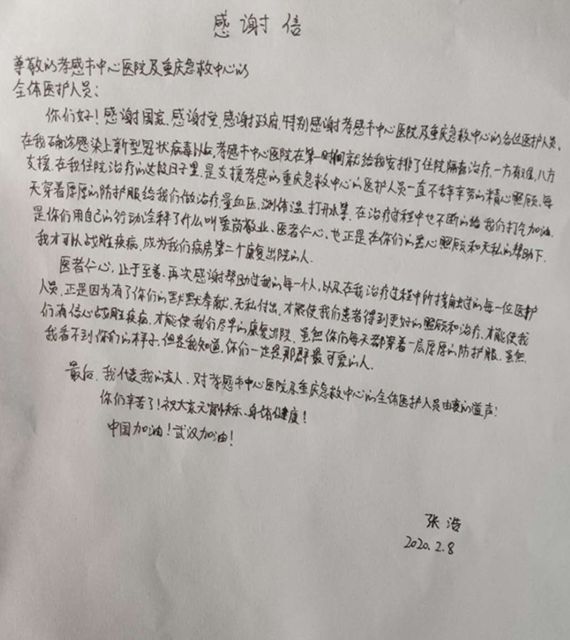 感谢信
尊敬的孝感市中心医院及重庆急救中心的
全体医护人员：
你们好！感谢国家，感谢党，感谢政府，特别感谢孝感市中心医院及重庆急救中心的各位医护人员，
在我确诊感染上新型冠状病毒以后，孝感市中心医院在第一时间就给我安排了住院隔离治疗，一方有难，八方
支援。在我住院治疗的这段日子里，是支援孝感的重庆急救中心的医护人员一直不辞辛劳的精心照顾，每
天穿着厚厚的防护服给我们做治疗，量血压，测体温，打开水等，在治疗过程中也不断的给我们打气加油。
是你们用自己的行动诠释了什么叫爱岗敬业，医者仁心，也正是在你们的悉心照顾和无私的帮助下，
我才可以战胜疾病，成为我们病房第二个康复出院的人。
医者仁心，止于至善，再次感谢帮助过我的每一个人，以及在我治疗过程中所接触过的每一位医护
人员，正是因为有了你们的默默奉献，无私付出，才能使我们患者得到更好的照顾和治疗，才能使我
们有信心战胜疾病，才能使我们尽早的康复出院，虽然你们每天都穿着一层厚厚的防护服，虽然
我看不到你们的样子，但是我知道，你们一定是那群最可爱的人。
最后，我代表我的家人，对孝感市中心医院及重庆急救中心的全体医护人员由衷的道声：
你们辛苦了！祝大家元宵快乐、身体健康！
中国加油！武汉加油！
张浩
2020.2.8